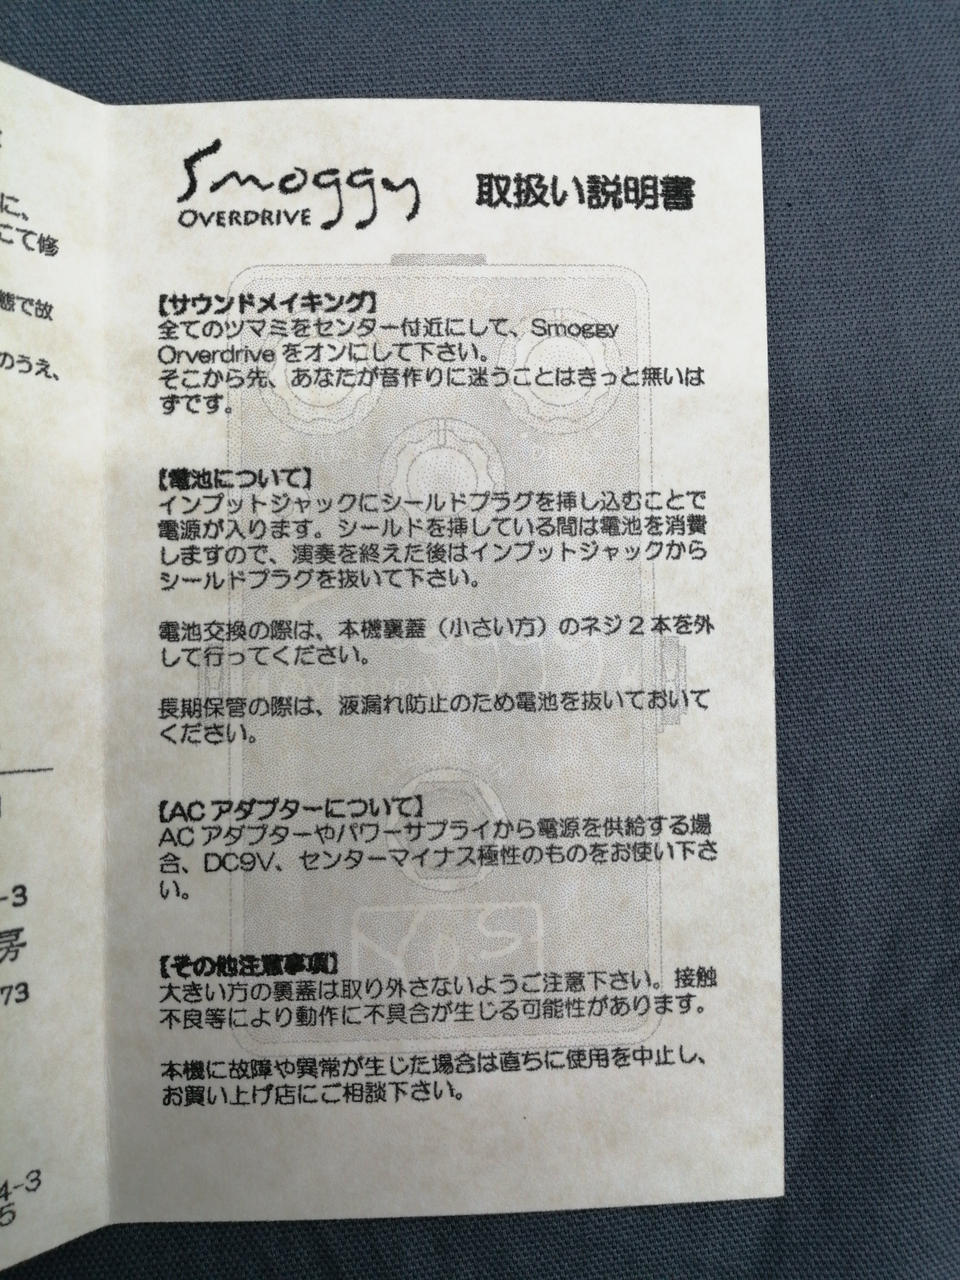 に、
にて修
態で故
のうえ、
-3
房
73
4-3
5
Smoggy
OVERDRIVE
取扱い説明書
【サウンドメイキング】
全てのツマミをセンター付近にして、Smoggy
Orverdrive をオンにして下さい。
そこから先、あなたが音作りに迷うことはきっと無いは
ずです。
【電池について】
インプットジャックにシールドプラグを挿し込むことで
電源が入ります。シールドを挿している間は電池を消費
しますので、演奏を終えた後はインプットジャックから
シールドプラグを抜いて下さい。
電池交換の際は、本機裏蓋（小さい方）のネジ２本を外
して行ってください。
長期保管の際は、液漏れ防止のため電池を抜いておいて
ください。
【AC アダプターについて】
AC アダプターやパワーサプライから電源を供給する場
合、DC9V、センターマイナス極性のものをお使い下さ
い。
【その他注意事項】
大きい方の裏蓋は取り外さないようご注意下さい。接触
不良等により動作に不具合が生じる可能性があります。
本機に故障や異常が生じた場合は直ちに使用を中止し、
お買い上げ店にご相談下さい。